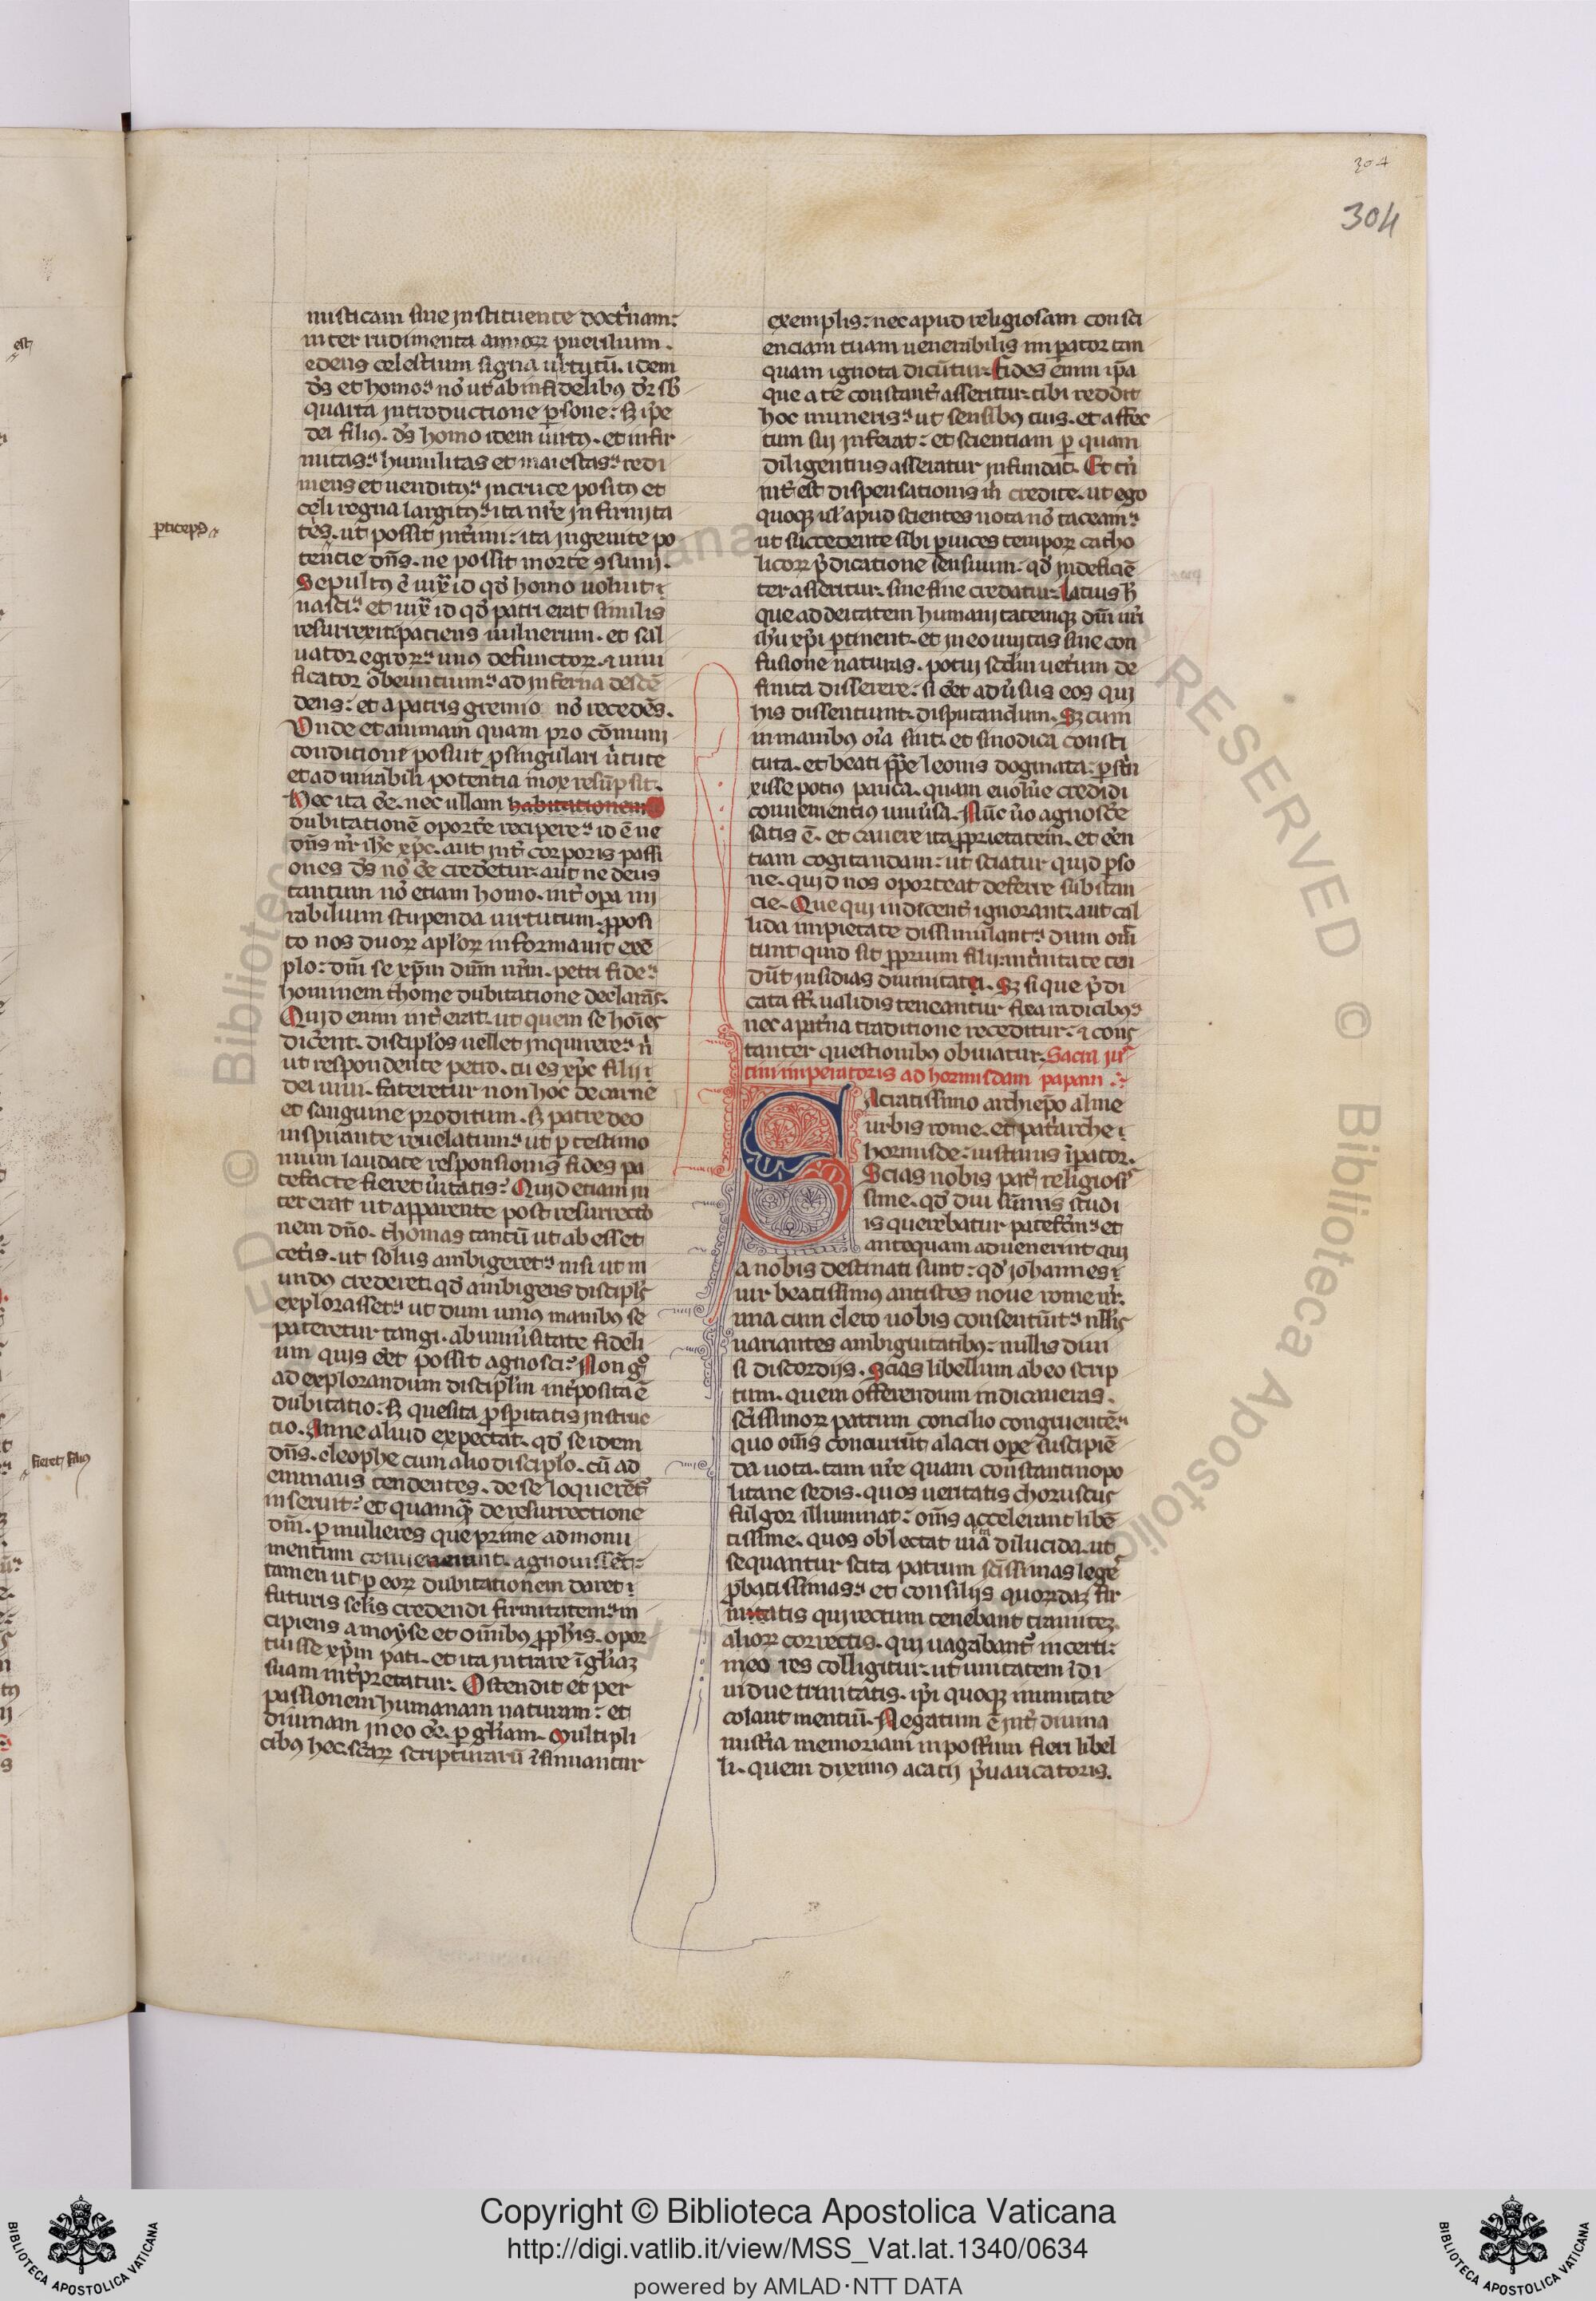 304
304
misticam siue instituente doct'nam:
inter rudimenta annoꝝ puerilium.
edens celestium signa uirtutū. idem
dꝰs et homo. nō ut ab infidelibꝰ dr̄ sb̄
quarta introductione ꝑsone: sꝫ ip̄e
dei filiꝰ. dꝰs homo idem uirtꝰ. et infir
mitas. humilitas et maiestas. redi
mens et uenditꝰ. in cruce positꝰ et
celi regna largitꝰ. ita nr̄e infirmita
tēs. ut possit int'imi: ita ingenite po
tēncie dn̄s. ne possit morte ꝯsumi.
Sepultꝰ ē iux̄ id qd̄ homo uoluit
nasci. et iux̄ id qd̄ patri erat similis
resurrexit. paciens uulnerum. et sal
uator egroꝝ. unꝰ defunctoꝝ. ⁊ uiui
ficator obeuntium. ad inferna descē
dens: et a patris gremio nō recedēs.
Unde et animam quam pro cōmuni
conditione posuit ꝑ singulari u'tute
et ad mirabili potentia mox resūpsit.
Nec ita ēe. nec ullam habitationem
dubitationē oport'e recipere. id ē ne
dn̄s nr̄ ih̄c xp̄c. aut int' corporis passi
ones dꝰs nō ēe credetur. aut ne deus
tantum nō etiam homo. int' oꝑa mi
rabilium stupenda uirtutum. ꝓposi
to nos duoꝝ apl̄oꝝ informauit exē
plo: dn̄i se xp̄m dn̄m nr̄m. petri fide.
hominem thome dubitatione declarās.
Quid enim int'erat. ut quem se hoīes
dic'ent. discipl̄os uellet inquirere. n̄
ut respondente petro. tu es xp̄c filij
dei uiui. fateretur non hoc de carne
et sanguine proditum. sꝫ patre deo
inspirante reuelatum. ut ꝑ testimo
nium laudate responsionis fides pa
tefacte fieret u'itatis. Quid etiam in
ter erat ut apparente post resurrecto
nem dn̄o. thomas tantū ut abesset
cet'is. ut solus ambigeret. nisi ut m
undꝰ crederet. qd̄ ambigens discipl̄s
explorasset. ut dum unius manibꝰ se
pateretur tangi. ab uniu'sitate fideli
um quis eēt possit agnosci. Non g̊
ad explorandum discipl̄m int'posita ē
dubitatio: sꝫ quesita ꝓspitatis instruc
tio. Anne aliud expectat. qd̄ se idem
dn̄s. cleophe cum alio discipl̄o. cū ad
emmaus tendentes. de se loquerēt'
inseruit. et quamqꝫ de resurrectione
dn̄i. ꝑ mulieres que prime ad monu
mentum conuenerunt. agnouissēt:
tamen ut ꝑ eoꝝ dubitationem daret
futuris sēclis credendi firmitatem. in
cipiens a moyse et omībꝰ ꝓph̄is. opor
tuisse xp̄m pati. et ita intrare ī gl̄iaꝫ
suam int'pretatur. Ostendit et per
passionem humanam naturam: et
diuinam in eo ēe. ꝑ gl̄iam. Multipli
cibꝰ hec. sc̄aꝝ scripturarū īsinuantur
ꝑticeps
est
fieret filiꝰ
exemplis: nec apud religiosam consci
enciam tuam uenerabilis imꝑator tan
quam ignota dicūtur. Fides enim ip̄a
que a te constant' asseritur. tibi reddit
hoc muneris. ut sensibꝰ tuis. et affec
tum sui inferat: et scientiam ꝑ quam
diligentius asseratur infundat. Et cū
int' est dispensationis m̄ credite. ut ego
quoqꝫ ul̄ apud scientes nota nō taceam.
ut succedente sibi ꝑ uices tempoꝝ catho
licoꝝ p̄dicatione sensuum. qd̄ indeficiē
ter asseritur. sine fine credatur. Latius h̄
que ad deitatem humanitatemqꝫ dn̄i nr̄i
ih̄u xp̄i ꝑtinent. et in eo unitas sine con
fusione naturas. potui sed'm uet'um de
finita disserere: si eēt adu'sus eos qui
his dissentiunt. disputandum. Sꝫ cum
in manibꝰ oīa sint. et sinodica consti
tuta. et beati pp̄e leonis dogmata: ꝑst'n
xisse potius pauca. quam euolu'e credidi
conuenientiꝰ uniu'sa. Nūc u'o agnosc'e
satis ē. et cauere ita ꝓprietatem. et ēen
tiam cogitandam: ut sciatur quid ꝑso
ne. quid nos oporteat deferre substan
cie. Que qui indicent' ignorant. aut cal
lida impietate dissimulant. dum om̄i
tunt quid sit ꝓprium filij. int'nitate ten
dūt insidias diuinitati. Sꝫ si que p̄di
cata sūt. ualidis teneantur fixa radicibꝰ.
nec a pat'na traditione receditur: ⁊ cons
tanter questionibꝰ obuiatur. Sacra jus
tini imperatoris ad hormisdam papam
Sacratissimo archiep̄o alme
urbis rome. et pat'arche
hormisde: iustinus imꝑator.
Scias nobis pat' religiosis
sime. qd̄ diu sūmis studi
is querebatur patef'tm. et
antequam aduenerint qui
a nobis destinati sunt: qd̄ johannes
uir beatissimus antistes noue rome nr̄.
una cum clero uobis consentiūt. nll̄is
uariantes ambiguitatibꝰ: nullis diui
si discordijs. Scias libellum ab eo scrip
tum. quem offerendum indicaueras.
sc̄issimoꝝ patrum concilio congruentē.
quo om̄s concurrūt alacri oꝑe suscipiē
da uota. tam nr̄e quam constantinopo
litane sedis. quos ueritatis choruscus
fulgor illuminat: om̄s accelerant libē
tissime. quos oblectat uiā dilucida. ut
sequantur scita patrum sc̄issimas lege'
ꝓbatissimas. et consilijs quordaꝫ fir
mitatis qui rectum tenebant tramitez.
alioꝝ correctis. qui uagabant' incerti:
in eo res colligitur. ut unitatem īdi
uidue trinitatis. ip̄i quoqꝫ unitate
colant mentiū. Negatum ē int' diuina
mist'ia memoriam in post'um fieri libel
li. quem diximus acatij p̄uaricatoris.
© Biblioteca Apostolica Vaticana
RESERVED © Biblioteca Apostolica
Copyright © Biblioteca Apostolica Vaticana
http://digi.vatlib.it/view/MSS_Vat.lat.1340/0634
powered by AMLAD·NTT DATA
BIBLIOTECA APOSTOLICA VATICANA
BIBLIOTECA APOSTOLICA VATICANA